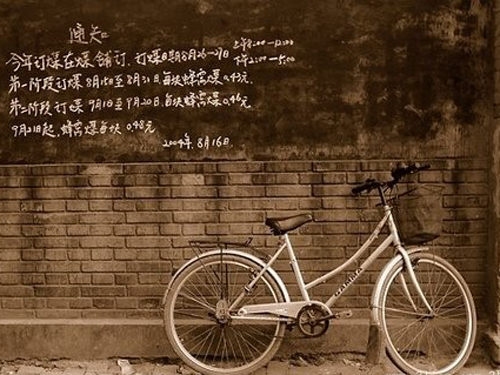 通知
今年订煤在煤铺订、订煤日期8月26—29日 上午8:00—12:00
下午2:00—5:00
第一阶段订煤 8月15日至8月31日每块蜂窝煤0.43元.
第二阶段订煤 9月1日至9月20日,每块蜂窝煤0.46元
9月21日起,蜂窝煤每块 0.48元
2004年.8月16日.